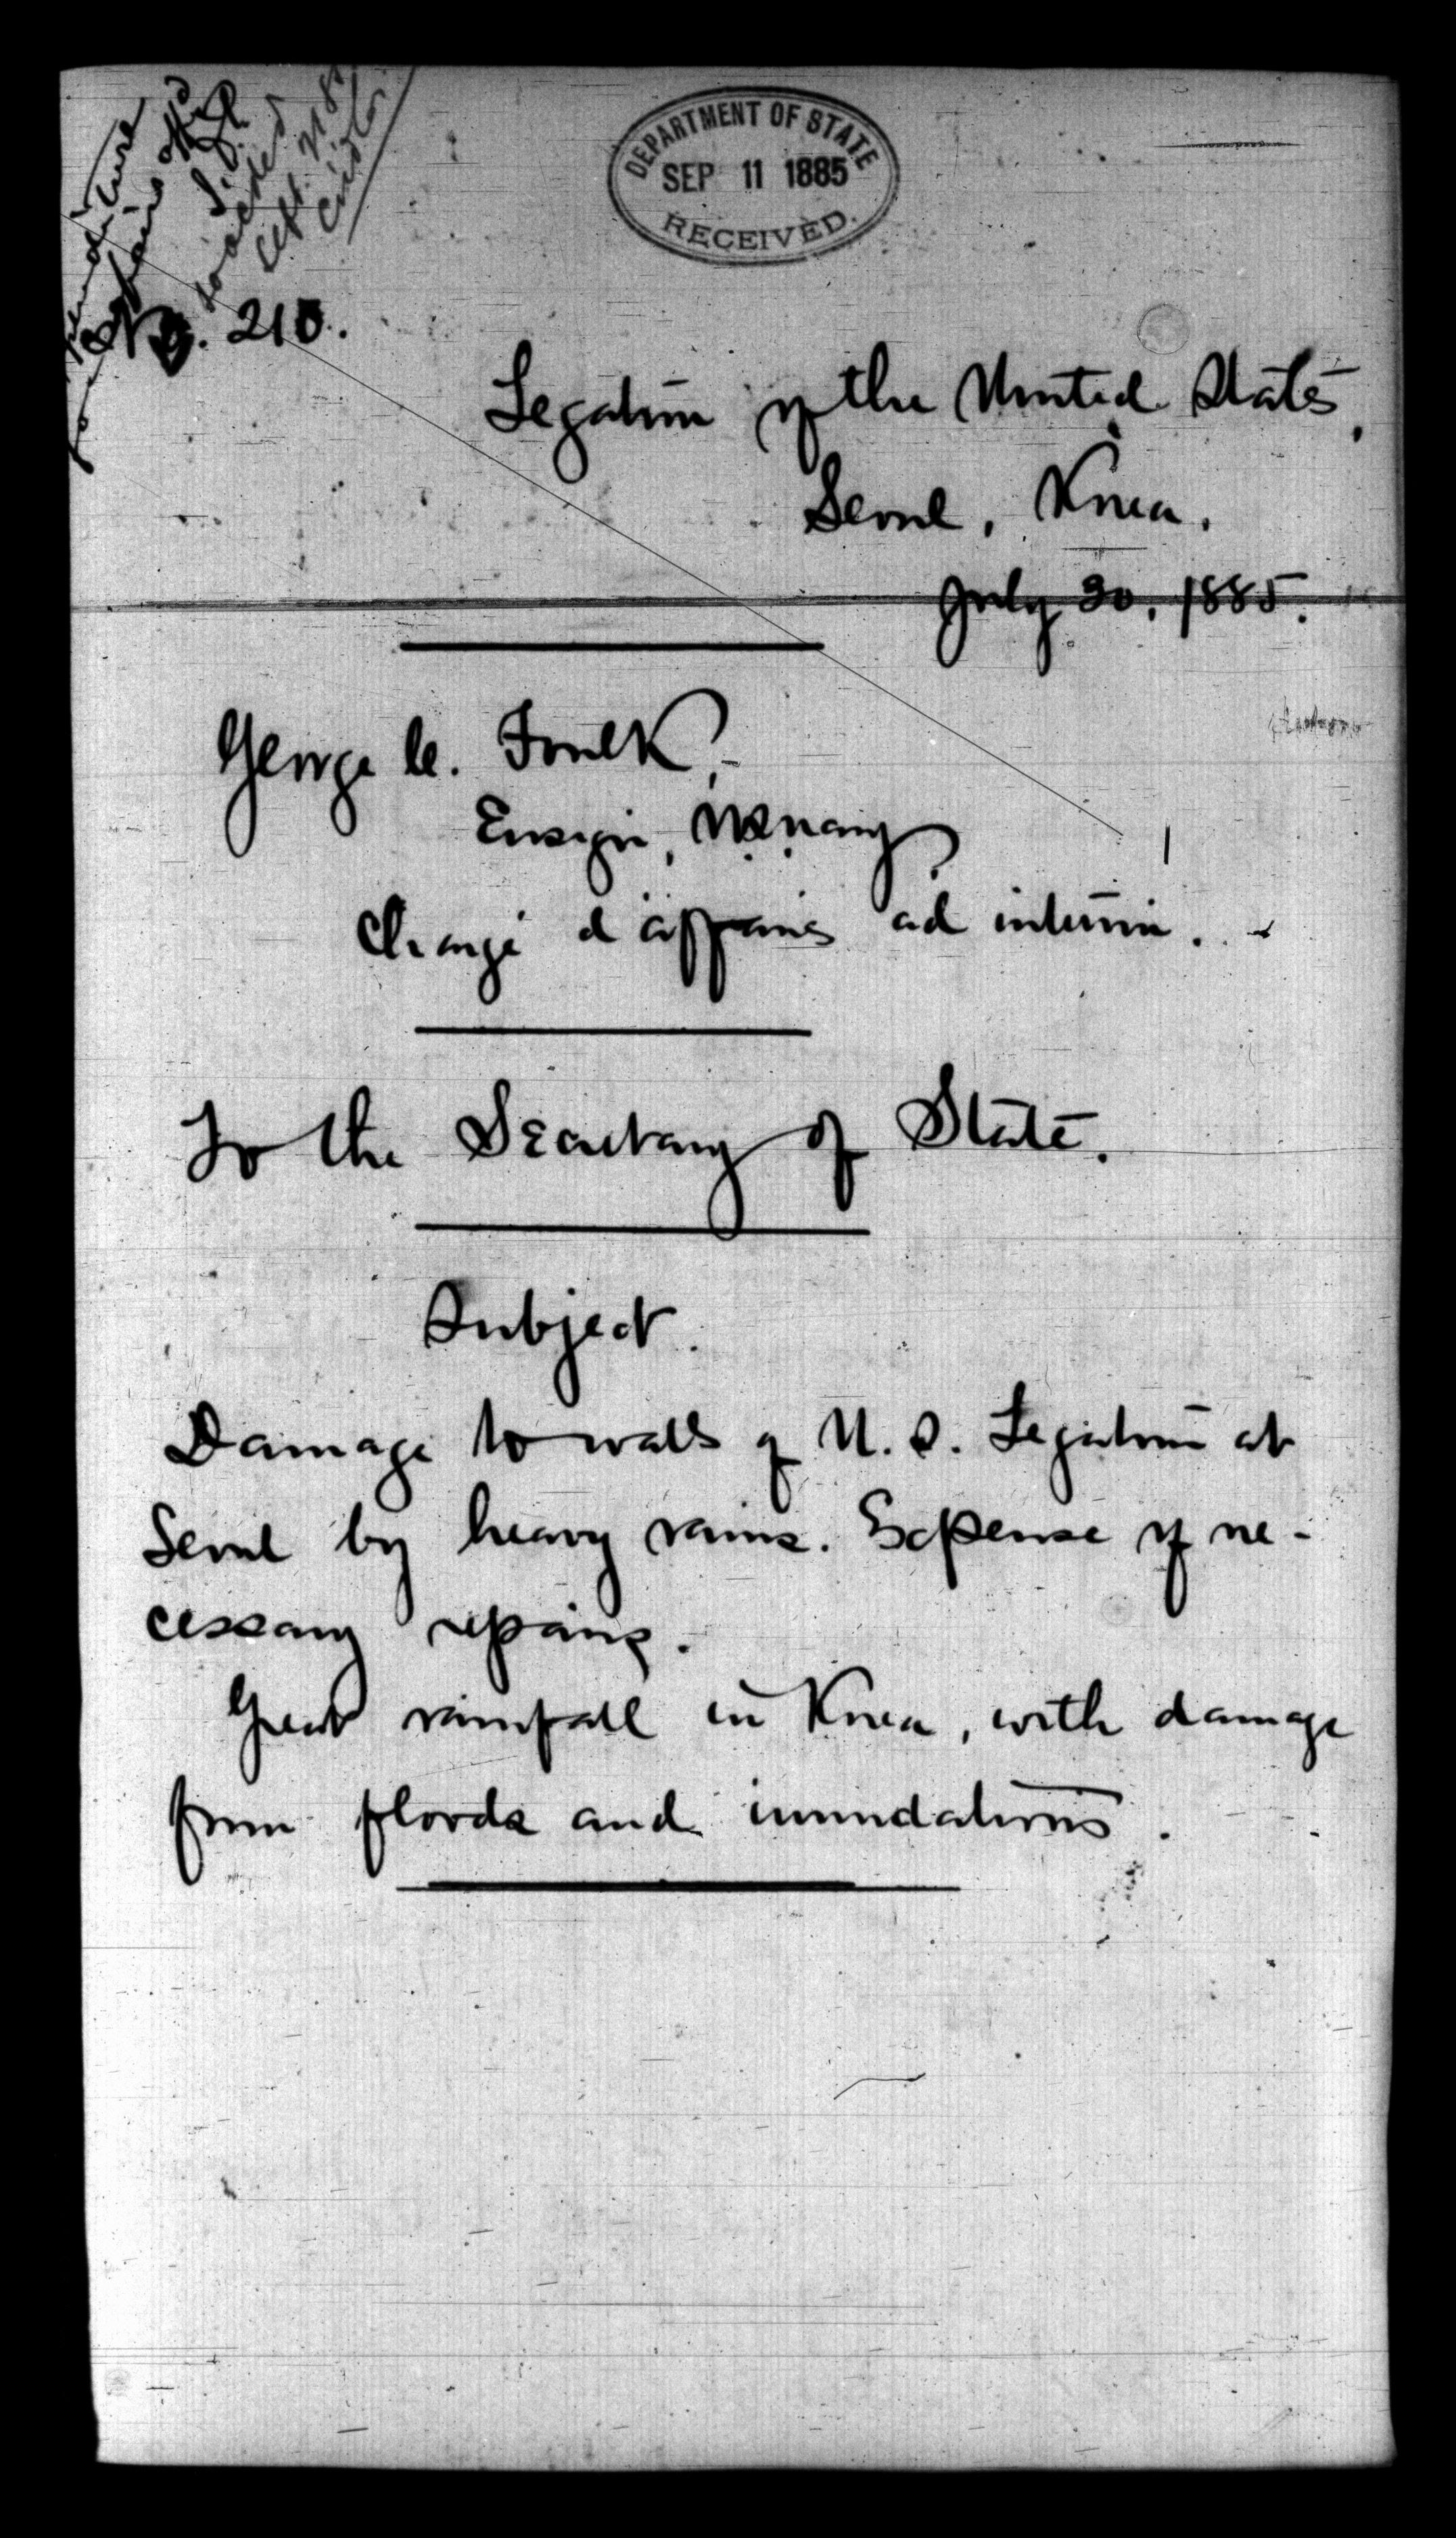 expenditure
for repairs app'd
DEPARTMENT OF STATE
SEP 11 1885
RECEIVED.
No. 210.
Legation of the United States,
Seoul, Korea.
July 30, 1885.
George C. Foulk,
Ensign, U.S. Navy
Chargé d'affaires ad interim.
To the Secretary of State.
Subject.
Damage to walls of U. S. Legation at
Seoul by heavy rains. Expense of ne-
cessary repairs.
Great rainfall in Korea, with damage
from floods and inundations.